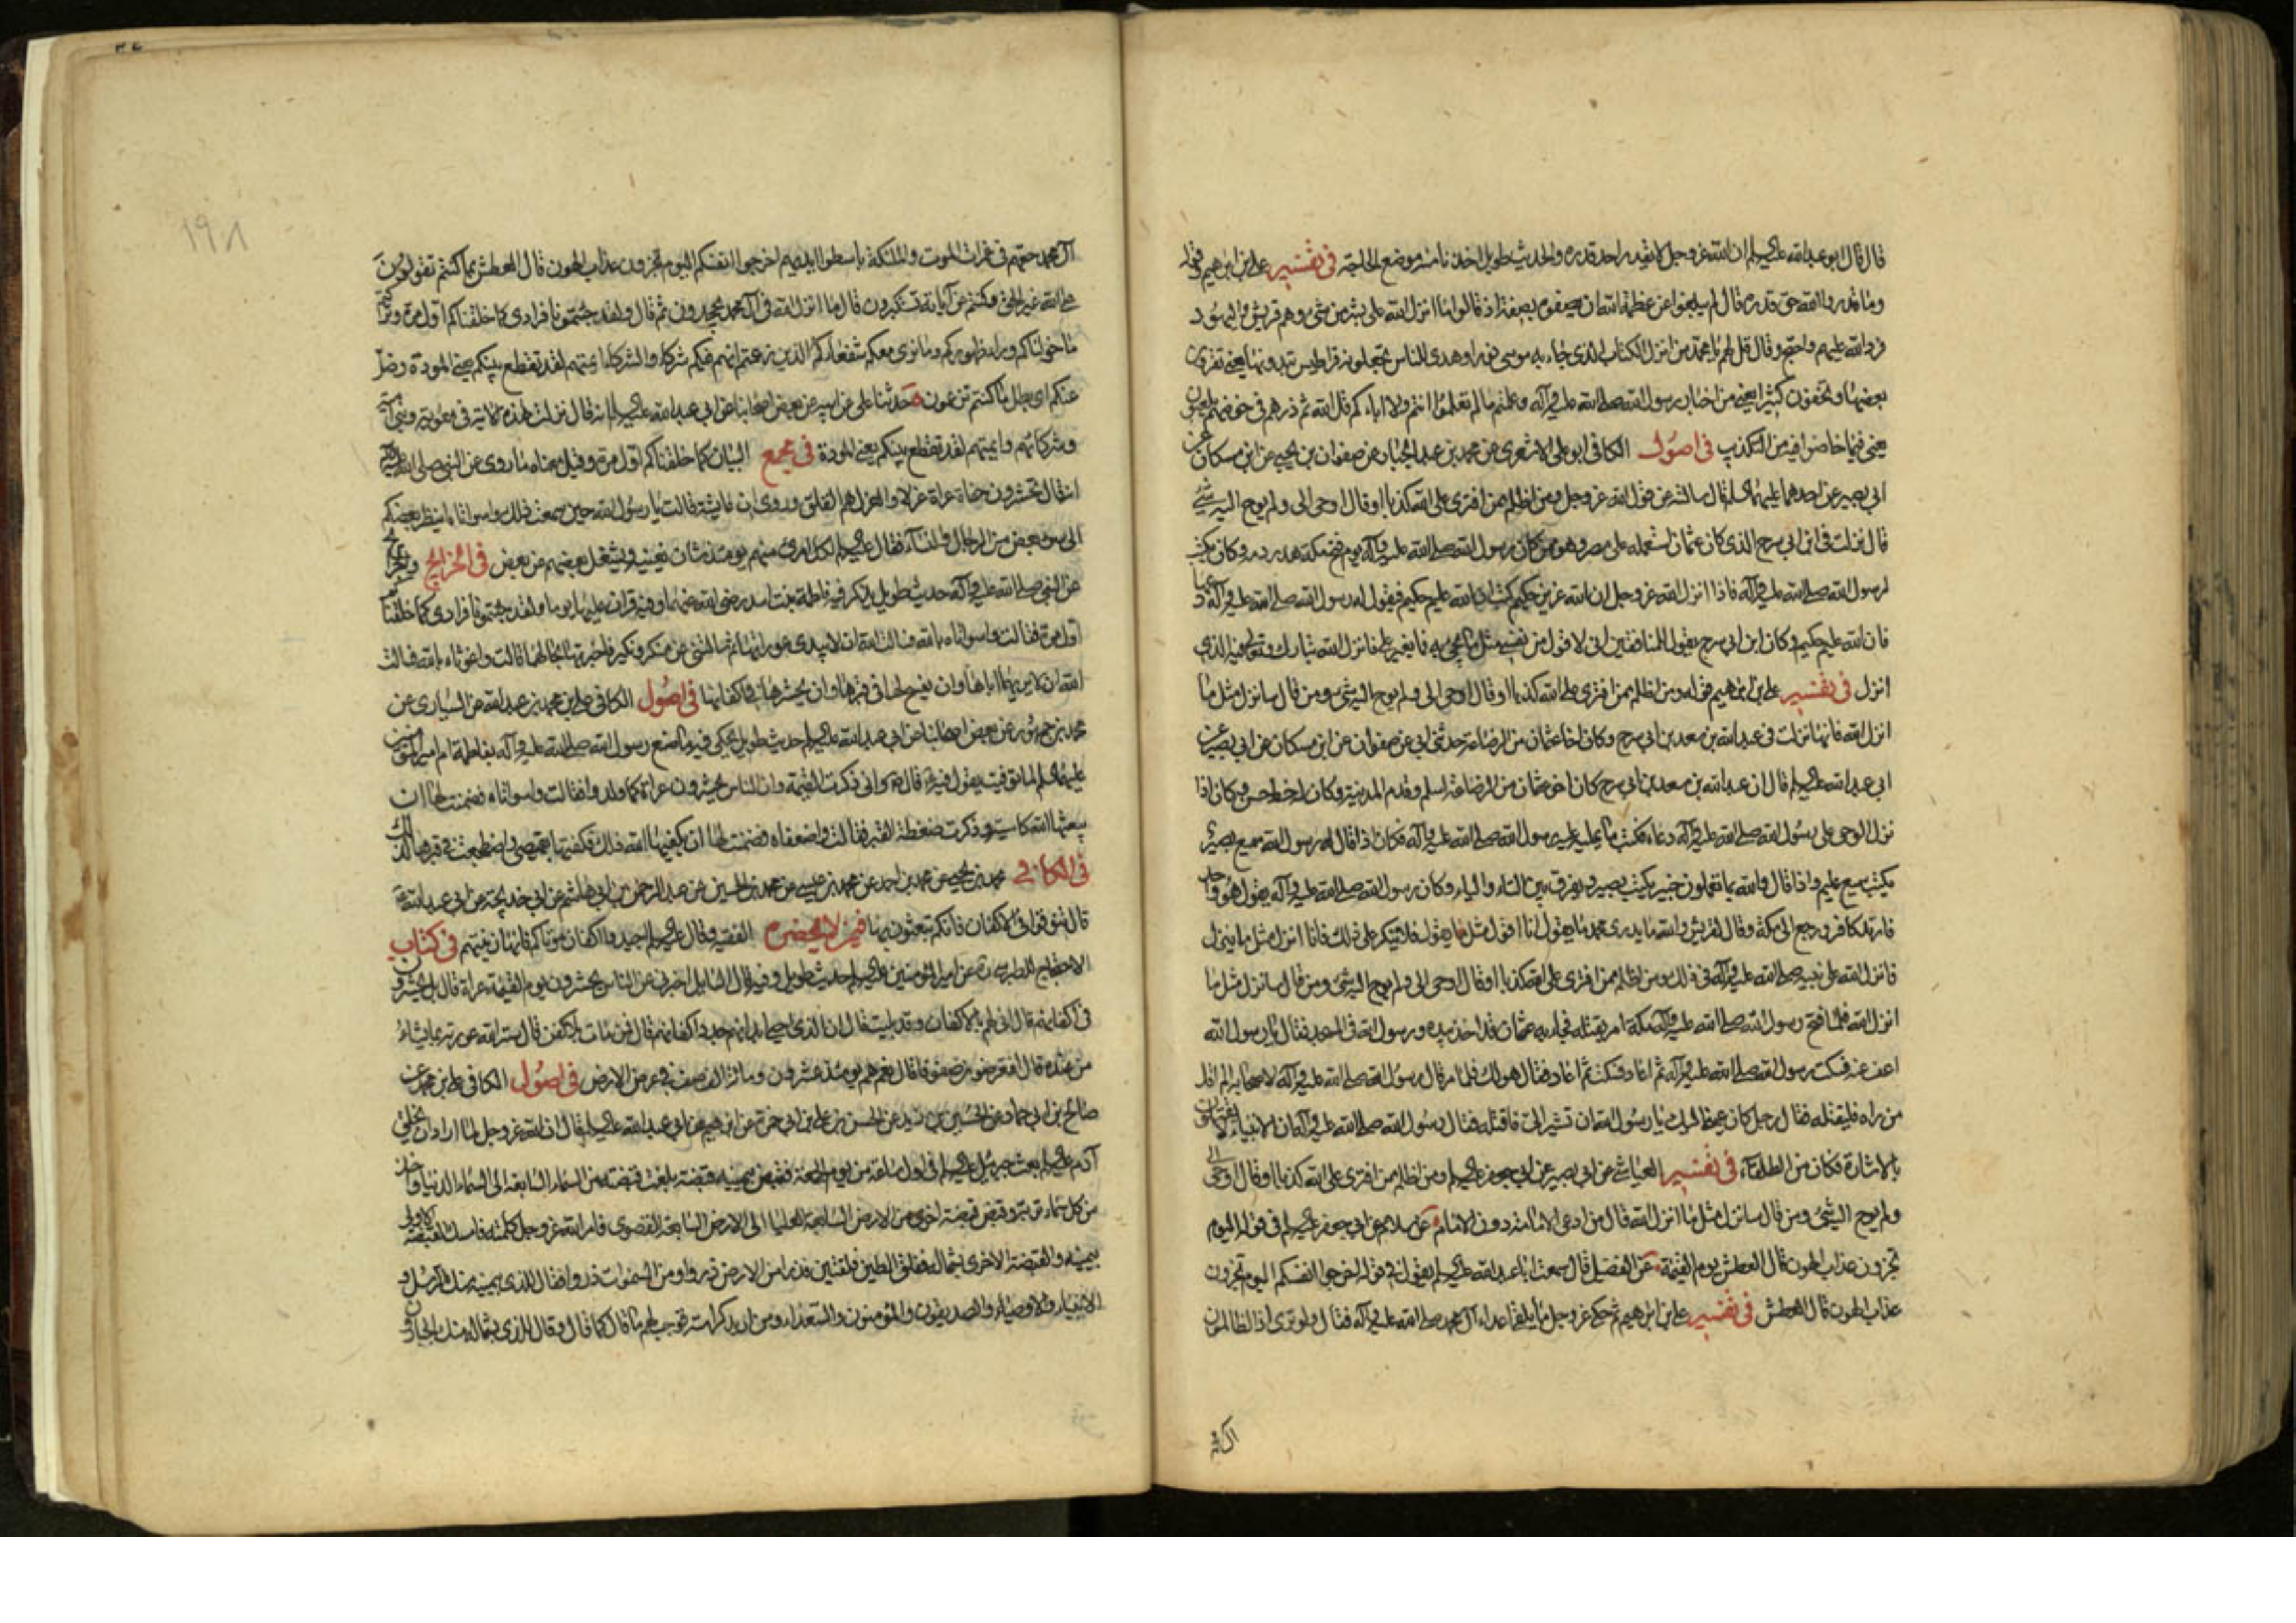 قال قال ابو عبد الله عليه السلم ان الله عز وجل لا يقدر احد قدره والحديث طويل اخذنا منه موضع الحاجة في تفسير علي بن ابرهيم قوله
وما قدروا الله حق قدره قال لم يبلغوا من عظمة الله ان يصفوه بصفته اذ قالوا ما انزل الله على بشر من شئ وهم قريش واليهود
فرد الله عليهم واحتج وقال قل لهم يا محمد من انزل الكتاب الذي جاء به موسى نورا وهدى للناس تجعلونه قراطيس تبدونها يعني تقرؤن
بعضها وتخفون كثيرا يعني من اخبار رسول الله صلى الله عليه وآله وعلمتم ما لم تعلموا انتم ولا اباءكم قل الله ثم ذرهم في خوضهم يلعبون
يعني فيما خاضوا فيه من التكذيب في اصول الكافي ابو علي الاشعري عن محمد بن عبد الجبار عن صفوان بن يحيى عن ابن مسكان عن
ابي بصير عن احدهما عليهما السلم قال سالته عن قول الله عز وجل ومن اظلم ممن افترى على الله كذبا او قال اوحى الى ولم يوح اليه شئ
قال نزلت في ابن ابي سرح الذي كان عثمان استعمله على مصر وهو ممن كان رسول الله صلى الله عليه وآله يوم فتح مكة هدر دمه وكان يكتب
لرسول الله صلى الله عليه وآله فاذا انزل الله عز وجل ان الله عزيز حكيم كتب ان الله عليم حكيم فيقول له رسول الله صلى الله عليه وآله دعها
فان الله عليم حكيم وكان ابن ابي سرح يقول للمنافقين اني لاقول من نفسي مثل ما يجئ به فما يغير علي فانزل الله تبارك وتعالى فيه الذي
انزل في تفسير علي بن ابرهيم قوله ومن اظلم ممن افترى على الله كذبا او قال اوحى الى ولم يوح اليه شئ ومن قال سانزل مثل ما
انزل الله فانها نزلت في عبد الله بن سعد بن ابي سرح وكان اخا عثمان من الرضاعة حدثني ابي عن صفوان عن ابن مسكان عن ابي بصير عن
ابي عبد الله عليه السلم قال ان عبد الله بن سعد بن ابي سرح كان اخو عثمان من الرضاعة اسلم وقدم المدينة وكان له خط حسن وكان اذا
نزل الوحي على رسول الله صلى الله عليه وآله دعاه فكتب ما يمليه عليه رسول الله صلى الله عليه وآله فكان اذا قال له رسول الله سميع بصير
يكتب سميع عليم واذا قال والله بما تعملون خبير يكتب بصير ويفرق بين التاء والياء وكان رسول الله صلى الله عليه وآله يقول هو واحد
فارتد كافرا ورجع الى مكة وقال لقريش والله ما يدري محمد ما يقول انا اقول مثل ما يقول فلا ينكر علي ذلك فانا انزل مثل ما ينزل
فانزل الله على نبيه صلى الله عليه وآله في ذلك ومن اظلم ممن افترى على الله كذبا او قال اوحى الى ولم يوح اليه شئ ومن قال سانزل مثل ما
انزل الله فلما فتح رسول الله صلى الله عليه وآله مكة امر بقتله فجاء به عثمان قد اخذ بيده ورسول الله في المسجد فقال يا رسول الله
اعف عنه فسكت رسول الله صلى الله عليه وآله ثم اعاد فسكت ثم اعاد فقال هو لك فلما مر قال رسول الله صلى الله عليه وآله لاصحابه الم اقل
من راه فليقتله فقال رجل كان عيني اليك يا رسول الله ان تشير الي فاقتله فقال رسول الله صلى الله عليه وآله ان الانبياء لا يقتلون
بالاشارة فكان من الطلقاء في تفسير العياشي عن ابي بصير عن ابي جعفر عليه السلم ومن اظلم ممن افترى على الله كذبا او قال اوحى الي
ولم يوح اليه شئ ومن قال سانزل مثل ما انزل الله قال من ادعى الامامة دون الامام عن سلام عن ابي جعفر عليه السلم في قوله اليوم
تجزون عذاب الهون قال العطش يوم القيمة عن الفضيل قال سمعت ابا عبد الله عليه السلم يقول في قوله اخرجوا انفسكم اليوم تجزون
عذاب الهون قال العطش في تفسير علي بن ابرهيم ثم حكى عز وجل ما يلقى اعداء آل محمد صلى الله عليه وآله فقال ولو ترى اذ الظالمون
١٩٨
آل محمد حقهم في غمرات الموت والملئكة باسطوا ايديهم اخرجوا انفسكم اليوم تجزون عذاب الهون قال العطش بما كنتم تقولون
على الله غير الحق وكنتم عن آياته تستكبرون قال ما انزل الله في آل محمد تجحدون ثم قال ولقد جئتمونا فرادى كما خلقناكم اول مرة وتركتم
ما خولناكم وراء ظهوركم وما نرى معكم شفعاءكم الذين زعمتم انهم فيكم شركاء والشركاء ائمتهم لقد تقطع بينكم يعني المودة وضل
عنكم اي بطل ما كنتم تزعمون حدثنا علي عن ابيه عن بعض اصحابنا عن ابي عبد الله عليه السلم انه قال نزلت هذه الاية في معوية وبني امية
وشركائهم وائمتهم لقد تقطع بينكم يعني المودة في مجمع البيان كما خلقناكم اول مرة وقيل معناه ما روى عن النبي صلى الله عليه وآله
انه قال تحشرون حفاة عراة غرلا والغرل هم القلف وروى ان عايشة قالت يا رسول الله حين سمعت ذلك واسوأتاه اينظر بعضهم
الى سوءة بعض من الرجال والنساء فقال عليه السلم لكل امرئ منهم يومئذ شان يغنيه ويشغل بعضهم عن بعض في الخرايج والجرايح
عن النبي صلى الله عليه وآله حديث طويل يذكر فيه فاطمة بنت اسد رضى الله عنها وفيه قرات عليها يوما ولقد جئتمونا فرادى كما خلقناكم
اول مرة فقالت واسوأتاه بالله فسالت الله ان لا يبدي عورتها ثم سالتني عن منكر ونكير فاخبرتها بحالهما قالت واغوثاه بالله فسالت
الله ان لا يريهما اياها وان يفسح لها في قبرها وان يحشرها في اكفانها في اصول الكافي علي بن محمد بن عبد الله عن السياري عن
محمد بن جمهور عن بعض اصحابنا عن ابي عبد الله عليه السلم حديث طويل يحكي فيه ما صنع رسول الله صلى الله عليه وآله بفاطمة ام امير المؤمنين
عليهما السلم لما توفيت يقول فيه قال واني ذكرت القيمة وان الناس يحشرون عراة كما ولدوا فقالت واسوأتاه فضمنت لها ان
يبعثها الله كاسية وذكرت ضغطة القبر فقالت واضعفاه فضمنت لها ان يكفيها الله ذلك فكفنتها بقميصي واضطجعت في قبرها لذلك
في الكافي محمد بن يحيى عن محمد بن احمد عن محمد بن عيسى عن محمد بن الحسين عن عبد الرحمن بن ابي هاشم عن ابي خديجة عن ابي عبد الله ع
قال تنوقوا في الاكفان فانكم تبعثون بها فيمن لا يحضره الفقيه وقال عليه السلم اجيدوا اكفان موتاكم فانها زينتهم في كتاب
الاحتجاج للطبرسي ره عن امير المؤمنين عليه السلم حديث طويل وفيه قال السايل اخبرني عن الناس يحشرون يوم القيمة عراة قال بل يحشرون
في اكفانهم قال انى لهم بالاكفان وقد بليت قال ان الذي احيا ابدانهم جدد اكفانهم قال فمن مات بلا كفن قال ستر الله عورته بما يشاء
من عنده قال افيعرضون صفوفا قال نعم هم يومئذ عشرون ومائة الف صف في عرض الارض في اصول الكافي علي بن محمد عن
صالح بن ابي حماد عن الحسين بن يزيد عن الحسن بن علي بن ابي حمزة عن ابرهيم عن ابي عبد الله عليه السلم قال ان الله عز وجل لما اراد ان يخلق
آدم عليه السلم بعث جبرئيل عليه السلم في اول ساعة من يوم الجمعة فقبض بيمينه قبضة بلغت قبضته من السماء السابعة الى السماء الدنيا واخذ
من كل سماء تربة وقبض قبضة اخرى من الارض السابعة العليا الى الارض السابعة القصوى فامر الله عز وجل كلمته فامسك القبضة الاولى
بيمينه والقبضة الاخرى بشماله ففلق الطين فلقتين فذرا من الارض ذروا ومن السموات ذروا فقال للذي بيمينه منك الرسل و
الانبياء والاوصياء والصديقون والمؤمنون والسعداء ومن اريد كرامته فوجب لهم ما قال كما قال وقال للذي بشماله منك الجبارون